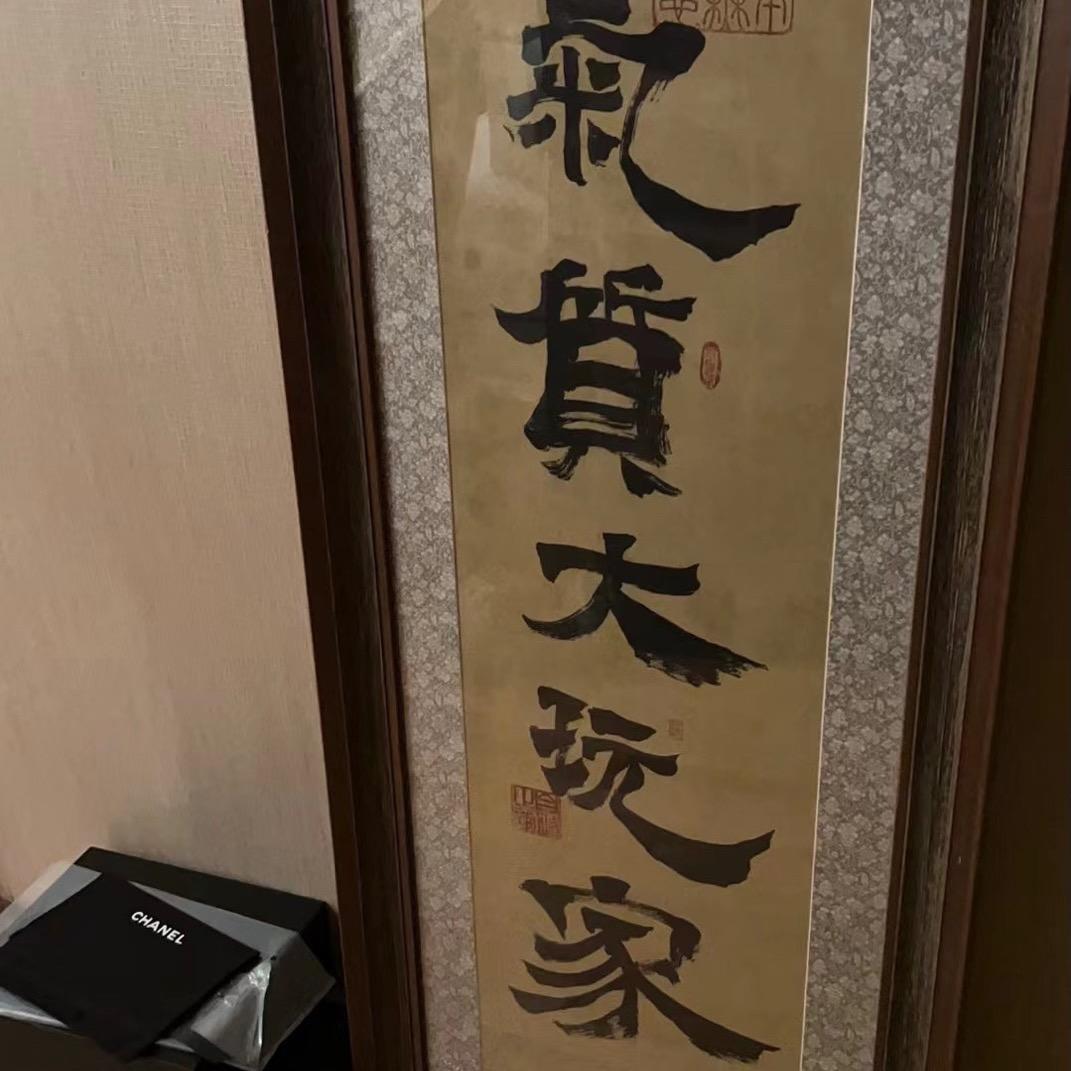 氣質大玩家
CHANEL